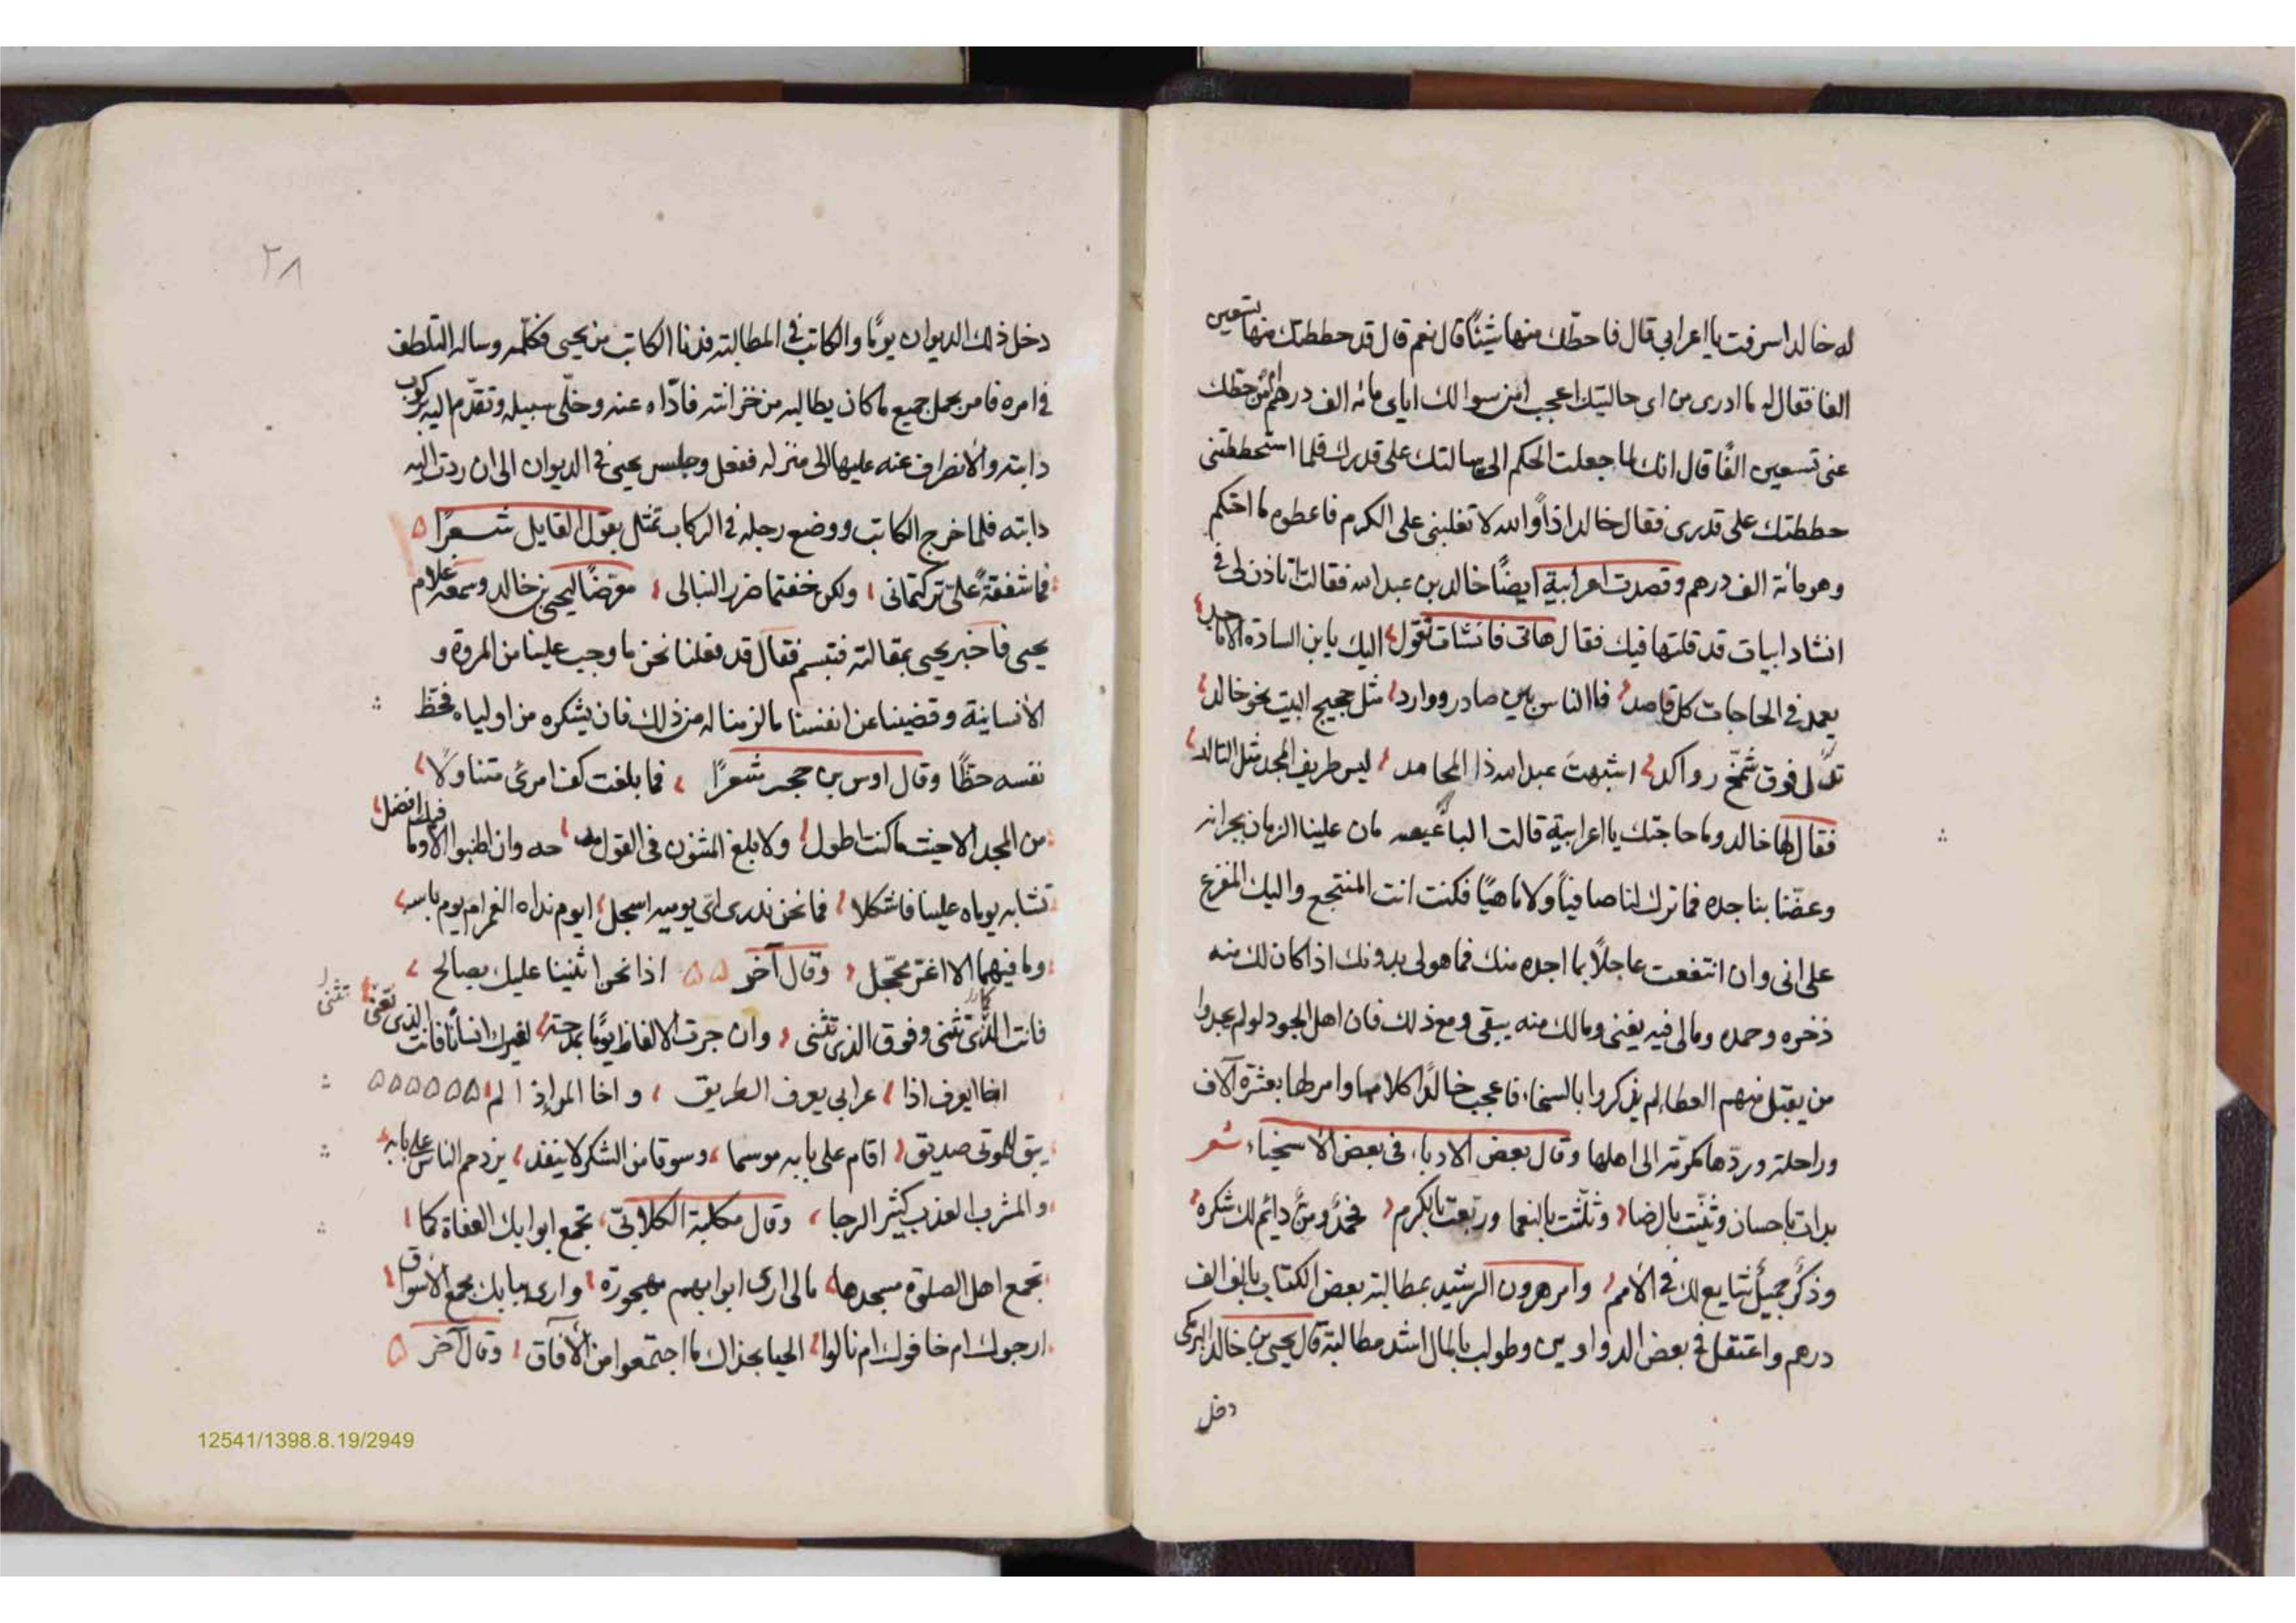 له خالد اسرفت يا اعرابي قال فاحطك منها شيئًا قال نعم قال قد حططتك منها تسعين
الفا فقال له ما ادرى من اى حالتيك اعجب امن سوالك اياى مائة الف درهم ام من حطك
عنى تسعين الفًا قال انك لما جعلت الحكم الى سالتك على قدرك فلما استحططتنى
حططتك على قدرى فقال خالد اذاً والله لا تغلبنى على الكرم فاعطوه ما احتكم
وهو مائة الف درهم وقصدت اعرابية ايضًا خالد بن عبد الله فقالت اتاذن لى فى
انشاد ابيات قد قلتها فيك فقال هاتى فانشات تقول اليك يا بن السادة الاماجد
يعمد فى الحاجات كل قاصد فالناس بين صادر ووارد مثل حجيج البيت نحو خالد
فوق شمّخ رواكد اشبهت عبد الله ذا المحامد ليس طريف المجد مثل التالد
فقال لها خالد وما حاجتك يا اعرابية قالت علينا الزمان بجرانه
وعضّنا بناجده فما ترك لنا صافيًا ولا ماهيًا فكنت انت المنتجع واليك المفزع
على انى وان انتفعت عاجلًا بما اجده منك فما هو لى بدونك اذا كان لك منه
ذخره وحمده ومالى فيه يفنى ومالك منه يبقى ومع ذلك فان اهل الجود لو لم يجدوا
من يقبل منهم العطا لم يذكروا بالسخاء فاعجب خالدًا كلامها وامر لها بعشرة آلاف
وراحلة وردّها مكرّمة الى اهلها وقال بعض الادباء فى بعض الاسخياء شعر
بدات باحسان وثنّيت بالرضا وثلّثت بالنعما وربّعت بالكرم دائم لك شكره
وذكر جميل شايع لك فى الامم وامر هرون الرشيد بمطالبة بعض الكتاب بالف الف
درهم واعتقل فى بعض الدواوين وطولب بالمال اشد مطالبة قال يحيى بن خالد البرمكى
دخل
٢٨
دخل ذلك الديوان يومًا والكاتب فى المطالبة فدنا الكاتب من يحيى فكلّمه وساله التلطف
فى امره فامر بحمل جميع ما كان يطالبه من خزانته فادّاه عنه وخلّى سبيله وتقدّم اليه بركوب
دابته والانصراف عنه عليها الى منزله ففعل وجلس يحيى فى الديوان الى ان ردت اليه
دابته فلما خرج الكاتب ووضع رجله فى الركاب تمثل بقول القايل شعرًا
فما شفقةً علىّ تركتمانى ولكن خفتما ضرر النبالى معرّضًا ليحيى بن خالد وسمعه غلام
يحيى فاخبر يحيى بمقالته فتبسم فقال قد فعلنا نحن ما وجب علينا من المروة و
الانسانية وقضينا عن انفسنا ما لزمنا له من ذلك فان يشكره من اولياه فحظ
نفسه حظًا وقال اوس بن حجر شعرًا فما بلغت كف امرئ متناولًا
من المجد الا حيث ما كنت اطول ولا بلغ المثنون فى القول مدحه وان اطنبوا الا وما فيك افضل
تشابه يوماه علينا فاشكلا فما نحن ندرى اىّ يوميه اسجل ايوم نداه الغمر ام يوم باسه
وما فيهما الا اغرّ محجّل وقال آخر اذا نحن اثنينا عليك بصالح
فانت الذى نثنى وفوق الذى نثنى وان جرت الالفاظ يومًا بمدحة لغيرك انسانًا فانت الذى نعنى
يعرف اذا اعرابى يعرف الطريق واخا المراد الم
يبق للموتى صديق اقام على بابه موسما وسوقا من الشكر لا ينفذ يزدحم الناس على بابه
والمشرب العذب كثير الرجا وقال مكلبة الكلابىّ تجمع ابوابك العفاة كما
تجمع اهل الصلوة مسجدها مالى ارى ابوابهم مهجورة وارى ببابك مجمع الاسواق
ارجوك ام خافوك ام نالوا الحيا بجداك ما اجتمعوا من الآفاق وقال آخر
12541/1398.8.19/2949